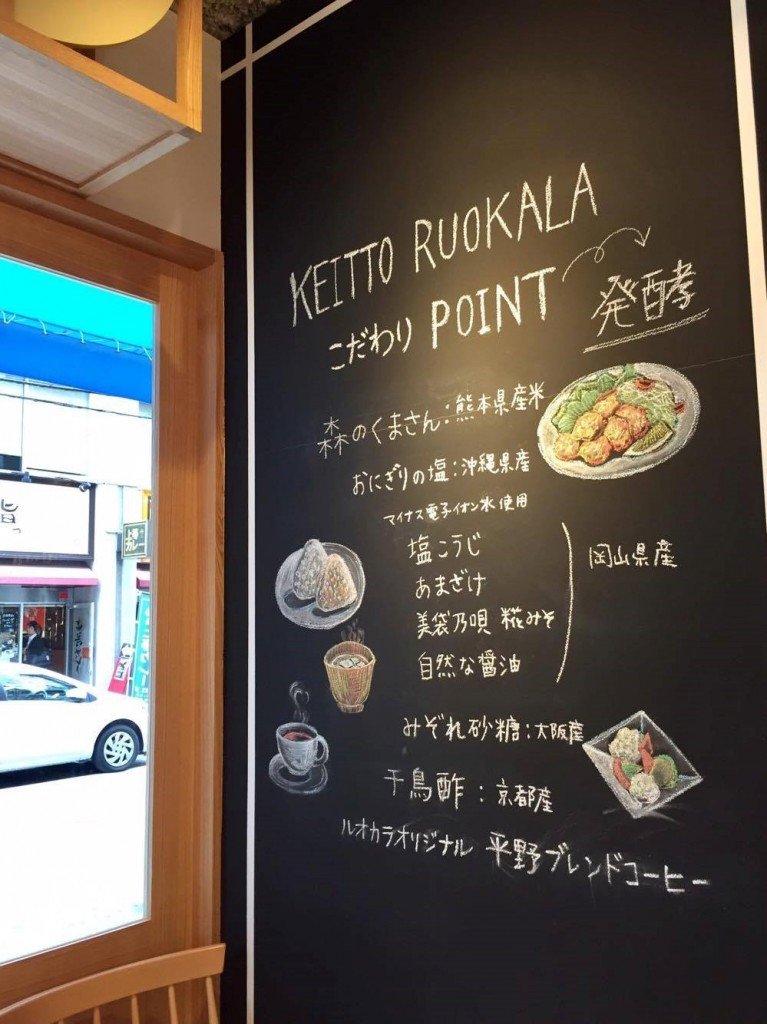 KEITTO RUOKALA
こだわり POINT 発酵
森のくまさん:熊本県産米
おにぎりの塩:沖縄県産
マイナス電子イオン水使用
塩こうじ
あまざけ
美袋乃唄 糀みそ
自然な醤油
岡山県産
みぞれ砂糖:大阪産
千鳥酢:京都産
ルオカラオリジナル 平野ブレンドコーヒー
上等
カレー